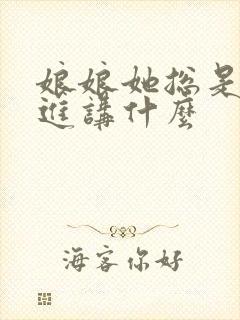 娘娘她總是
進講什麼
海客你好